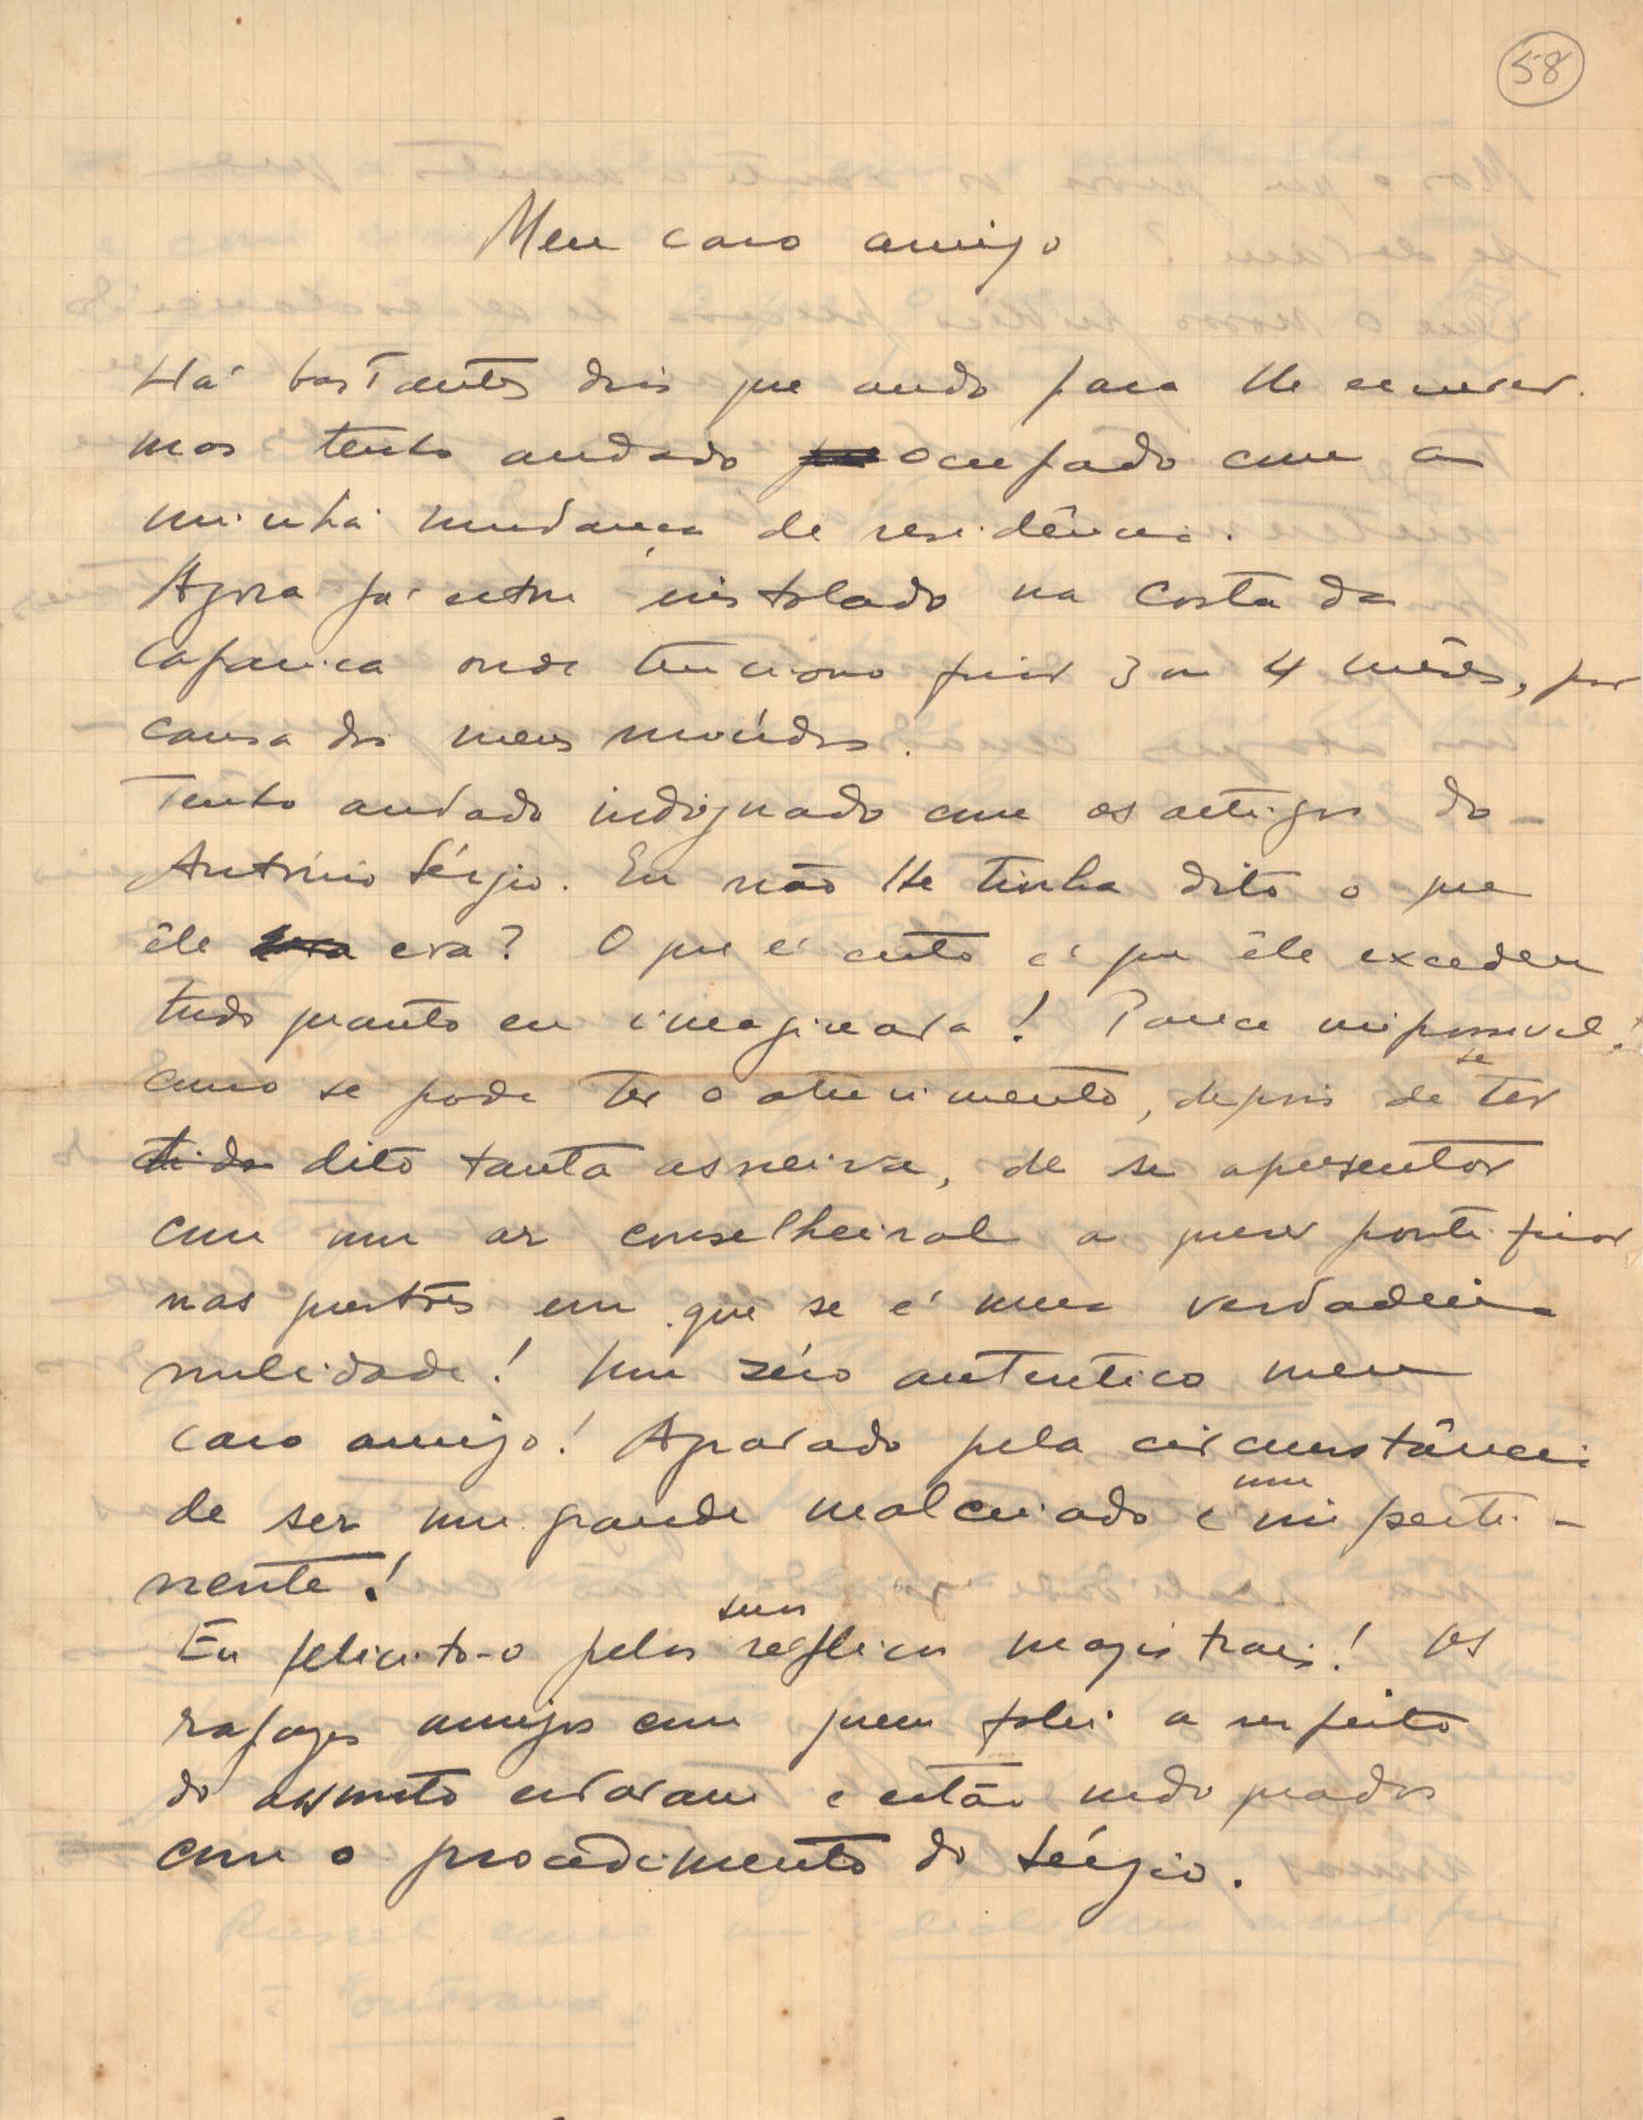 58
Meu caro amigo
Há bastantes dias que ando para lhe escrever.
mas tenho andado ocupado com a
minha mudança de residência.
Agora já estou instalado na Costa da
Caparica onde tenciono ficar 3 ou 4 mêses, por
causa dos meus miúdos.
Tenho andado indignado com os artigos do
António Sérgio. Eu não lhe tinha dito o que
êle era? O que é certo é que êle excedeu
tudo quanto eu imaginara! Parece impossivel!
Como se pode ter o atrevimento, depois de se ter
dito tanta asneira, de se apresentar
com um ar conselheiral a querer pontificar
nas questões em que se é uma verdadeira
nulidade! Um zéro autentico meu
caro amigo! Agravado pela circunstância
de ser um grande malcriado e um imperti-
nente!
Eu felicito-o pelas suas réplicas magistrais! Os
rapazes amigos com quem falei a respeito
do assunto estão indignados
com o procedimento do Sérgio.